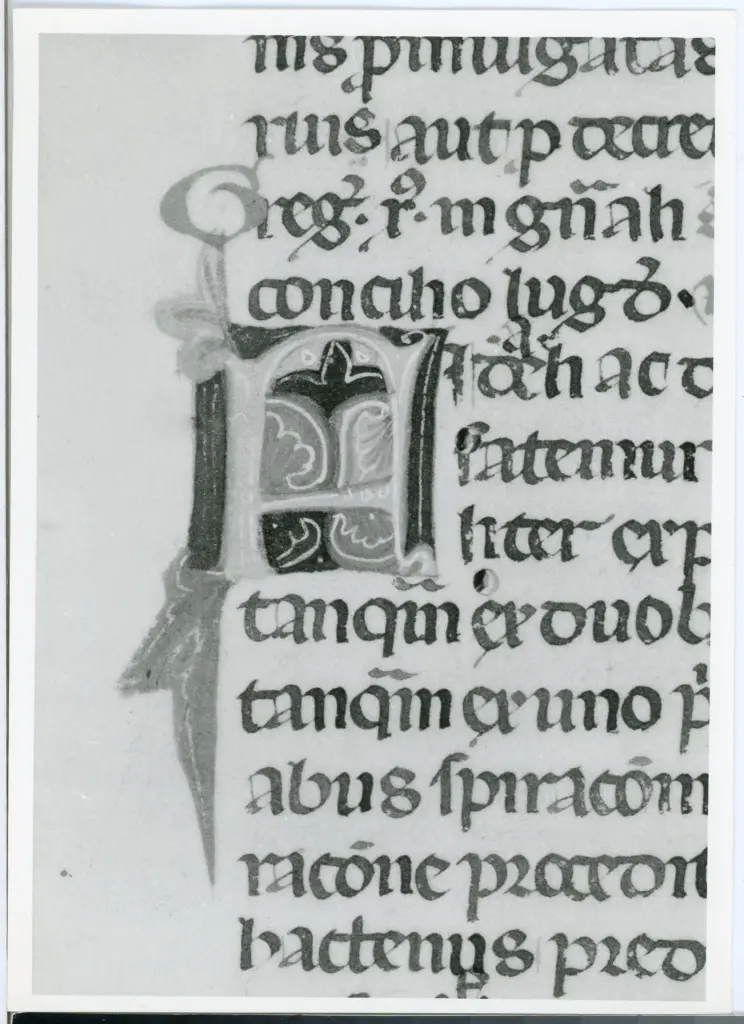 pmulgatas
aut p decre
Greg. x. in gn̄ali
concilio lugd.
Fideli ac d
fatemur
liter ex p
tanq̄m ex duob
tanq̄m ex uno p
abus spiracōni
racōne procedit
hactenus pred